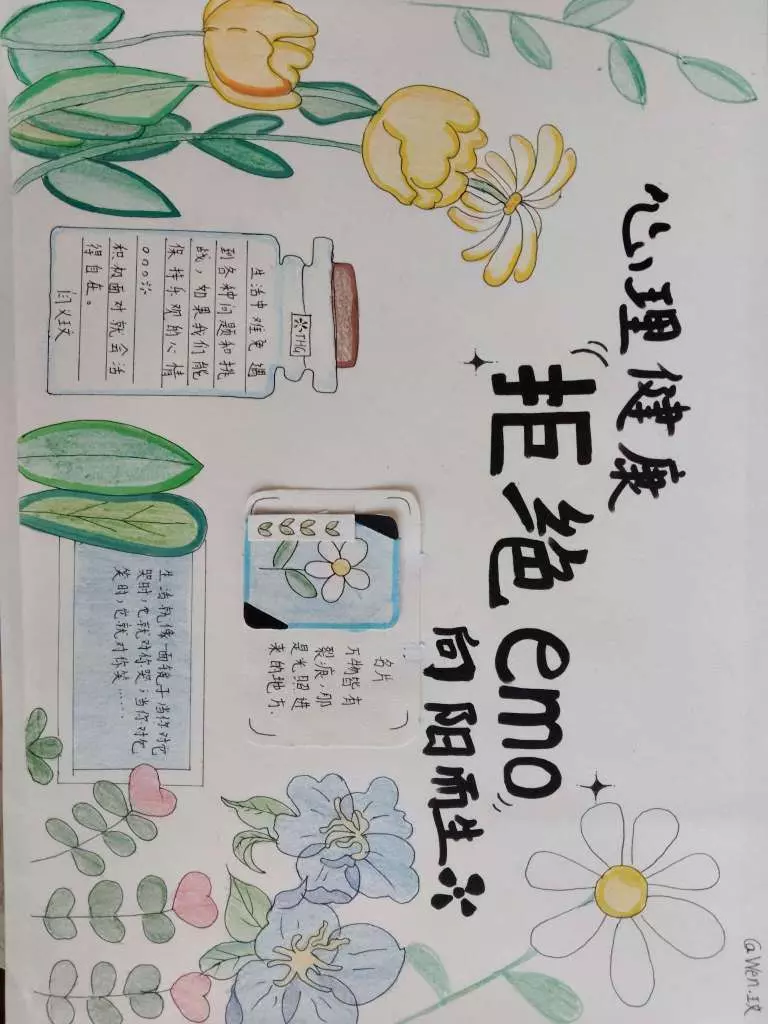 心理健康
拒绝emo
向阳而生
THG
生活中难免遇
到各种问题和挑
战，如果我们能
保持乐观的心情
积极面对就会活
得自在。
名片
万物皆有
裂痕，那
是光照进
来的地方.
生活就像一面镜子当你对它
哭时，它就对你哭；当你对它
笑时，它就对你笑……